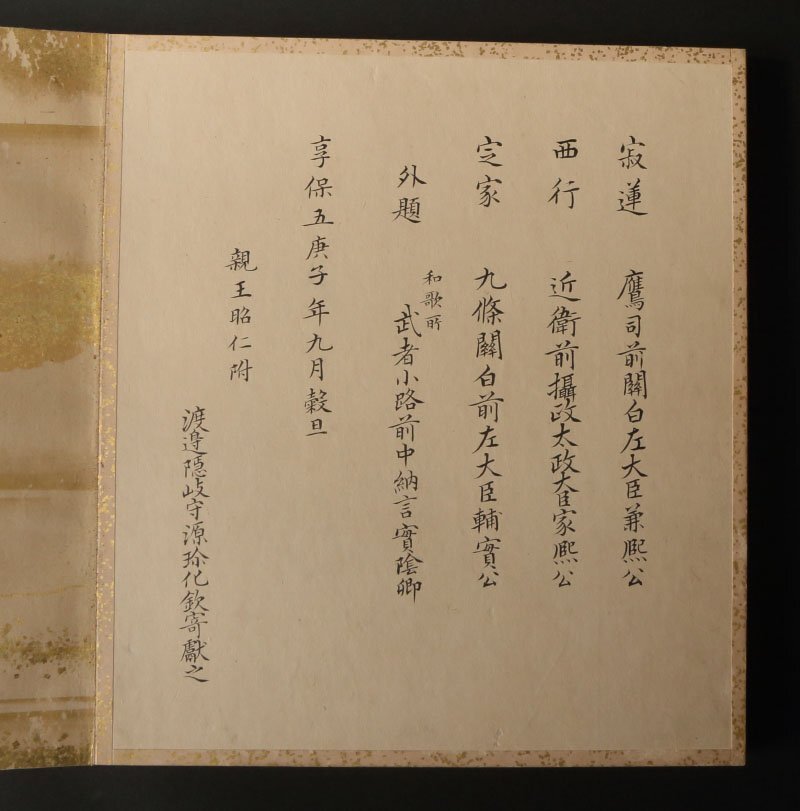 寂蓮　鷹司前關白左大臣兼熈公
西行　近衛前攝政太政大臣家熈公
定家　九條關白前左大臣輔實公
外題　和歌所　武者小路前中納言實陰卿
享保五庚子年九月穀旦
親王昭仁附
渡邉隠岐守源珍化欽寄獻之